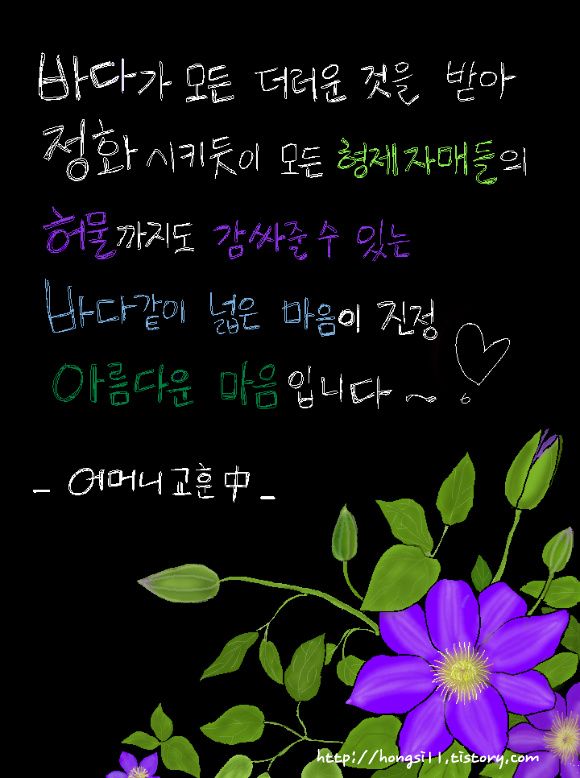 바다가 모든 더러운 것을 받아
정화 시키듯이 모든 형제자매들의
허물까지도 감싸줄 수 있는
바다같이 넓은 마음이 진정
아름다운 마음입니다~♡
- 어머니 교훈 中 -
http://hongsi11.tistory.com